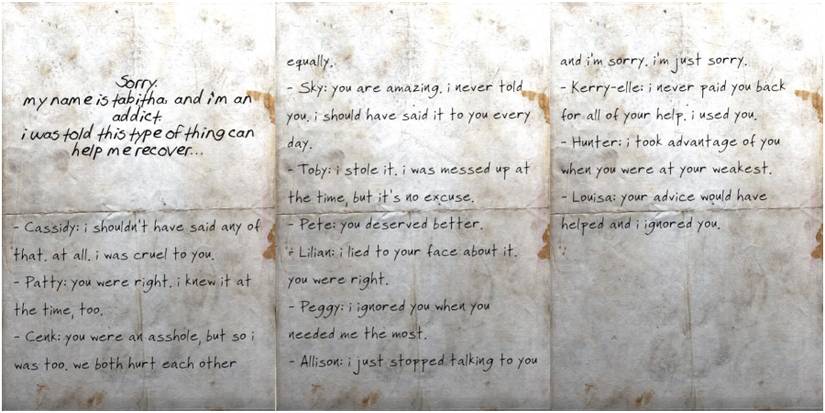 Sorry.
my name is tabitha. and i'm an
addict.
i was told this type of thing can
help me recover...
- Cassidy: i shouldn't have said any of
that. at all. i was cruel to you.
- Patty: you were right. i knew it at
the time, too.
- Cenk: you were an asshole, but so i
was too. we both hurt each other
equally.
- Sky: you are amazing. i never told
you. i should have said it to you every
day.
- Toby: i stole it. i was messed up at
the time, but it's no excuse.
- Pete: you deserved better.
- Lilian: i lied to your face about it.
you were right.
- Peggy: i ignored you when you
needed me the most.
- Allison: i just stopped talking to you
and i'm sorry. i'm just sorry.
- Kerry-elle: i never paid you back
for all of your help. i used you.
- Hunter: i took advantage of you
when you were at your weakest.
- Louisa: your advice would have
helped and i ignored you.